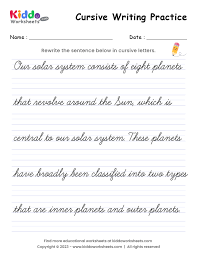 Kiddo
Worksheets.com
Cursive Writing Practice
Name : Date :
Rewrite the sentence below in cursive letters.
Our solar system consists of eight planets
that revolve around the Sun, which is
central to our solar system. These planets
have broadly been classified into two types
that are inner planets and outer planets.
Find more educational worksheets at kiddoworksheets.com
Copyright © 2023 - www.kiddoworksheets.com - All rights reserved